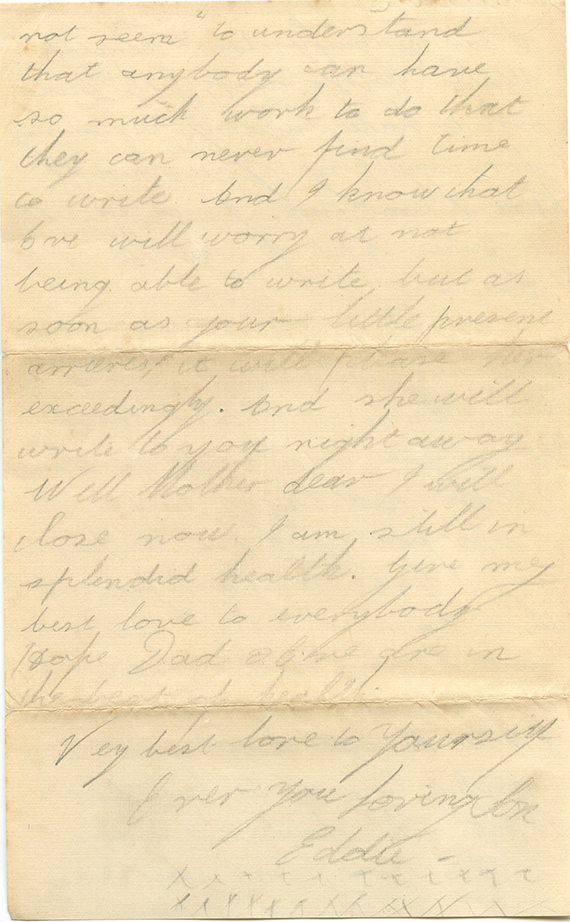 not seem to understand
that anybody can have
so much work to do that
they can never find time
to write. And I know that
will worry at not
being able to write, but as
soon as your little present
arrives, it will please her
exceedingly. And she will
write to you right away
Well Mother dear I will
close now. I am still in
splendid health. Give my
best love to everybody
Hope Dad are in
the best of health.
Vey best love to Yourself
Ever You loving Son
Eddie -
X X X X X X X X X
X X X X X X X X X X